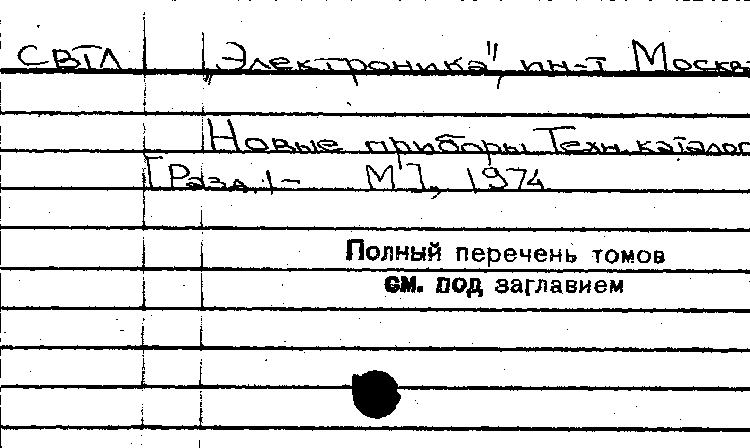 СВТЛ „Электроника", ин-т Москва
Новые приборы Техн. каталог
[Разд. 1- М], 1974
Полный перечень томов
см. под заглавием